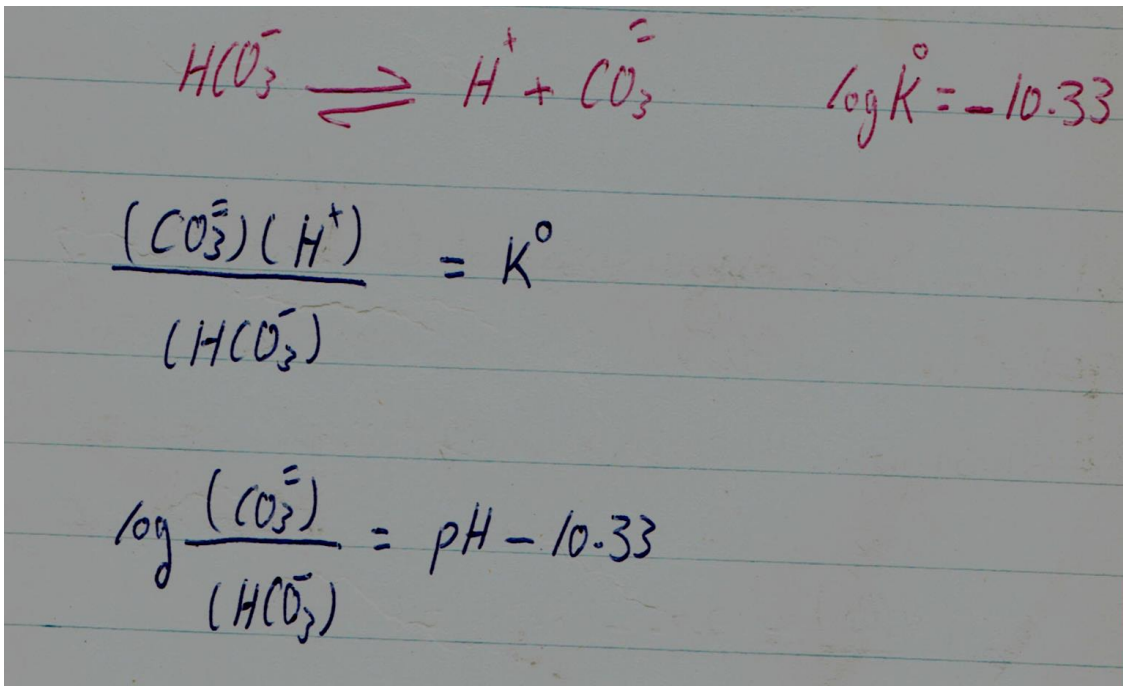 HCO₃⁻ ⇌ H⁺ + CO₃⁼ log K° = -10.33
(CO₃⁼)(H⁺) / (HCO₃⁻) = K°
log (CO₃⁼) / (HCO₃⁻) = pH - 10.33